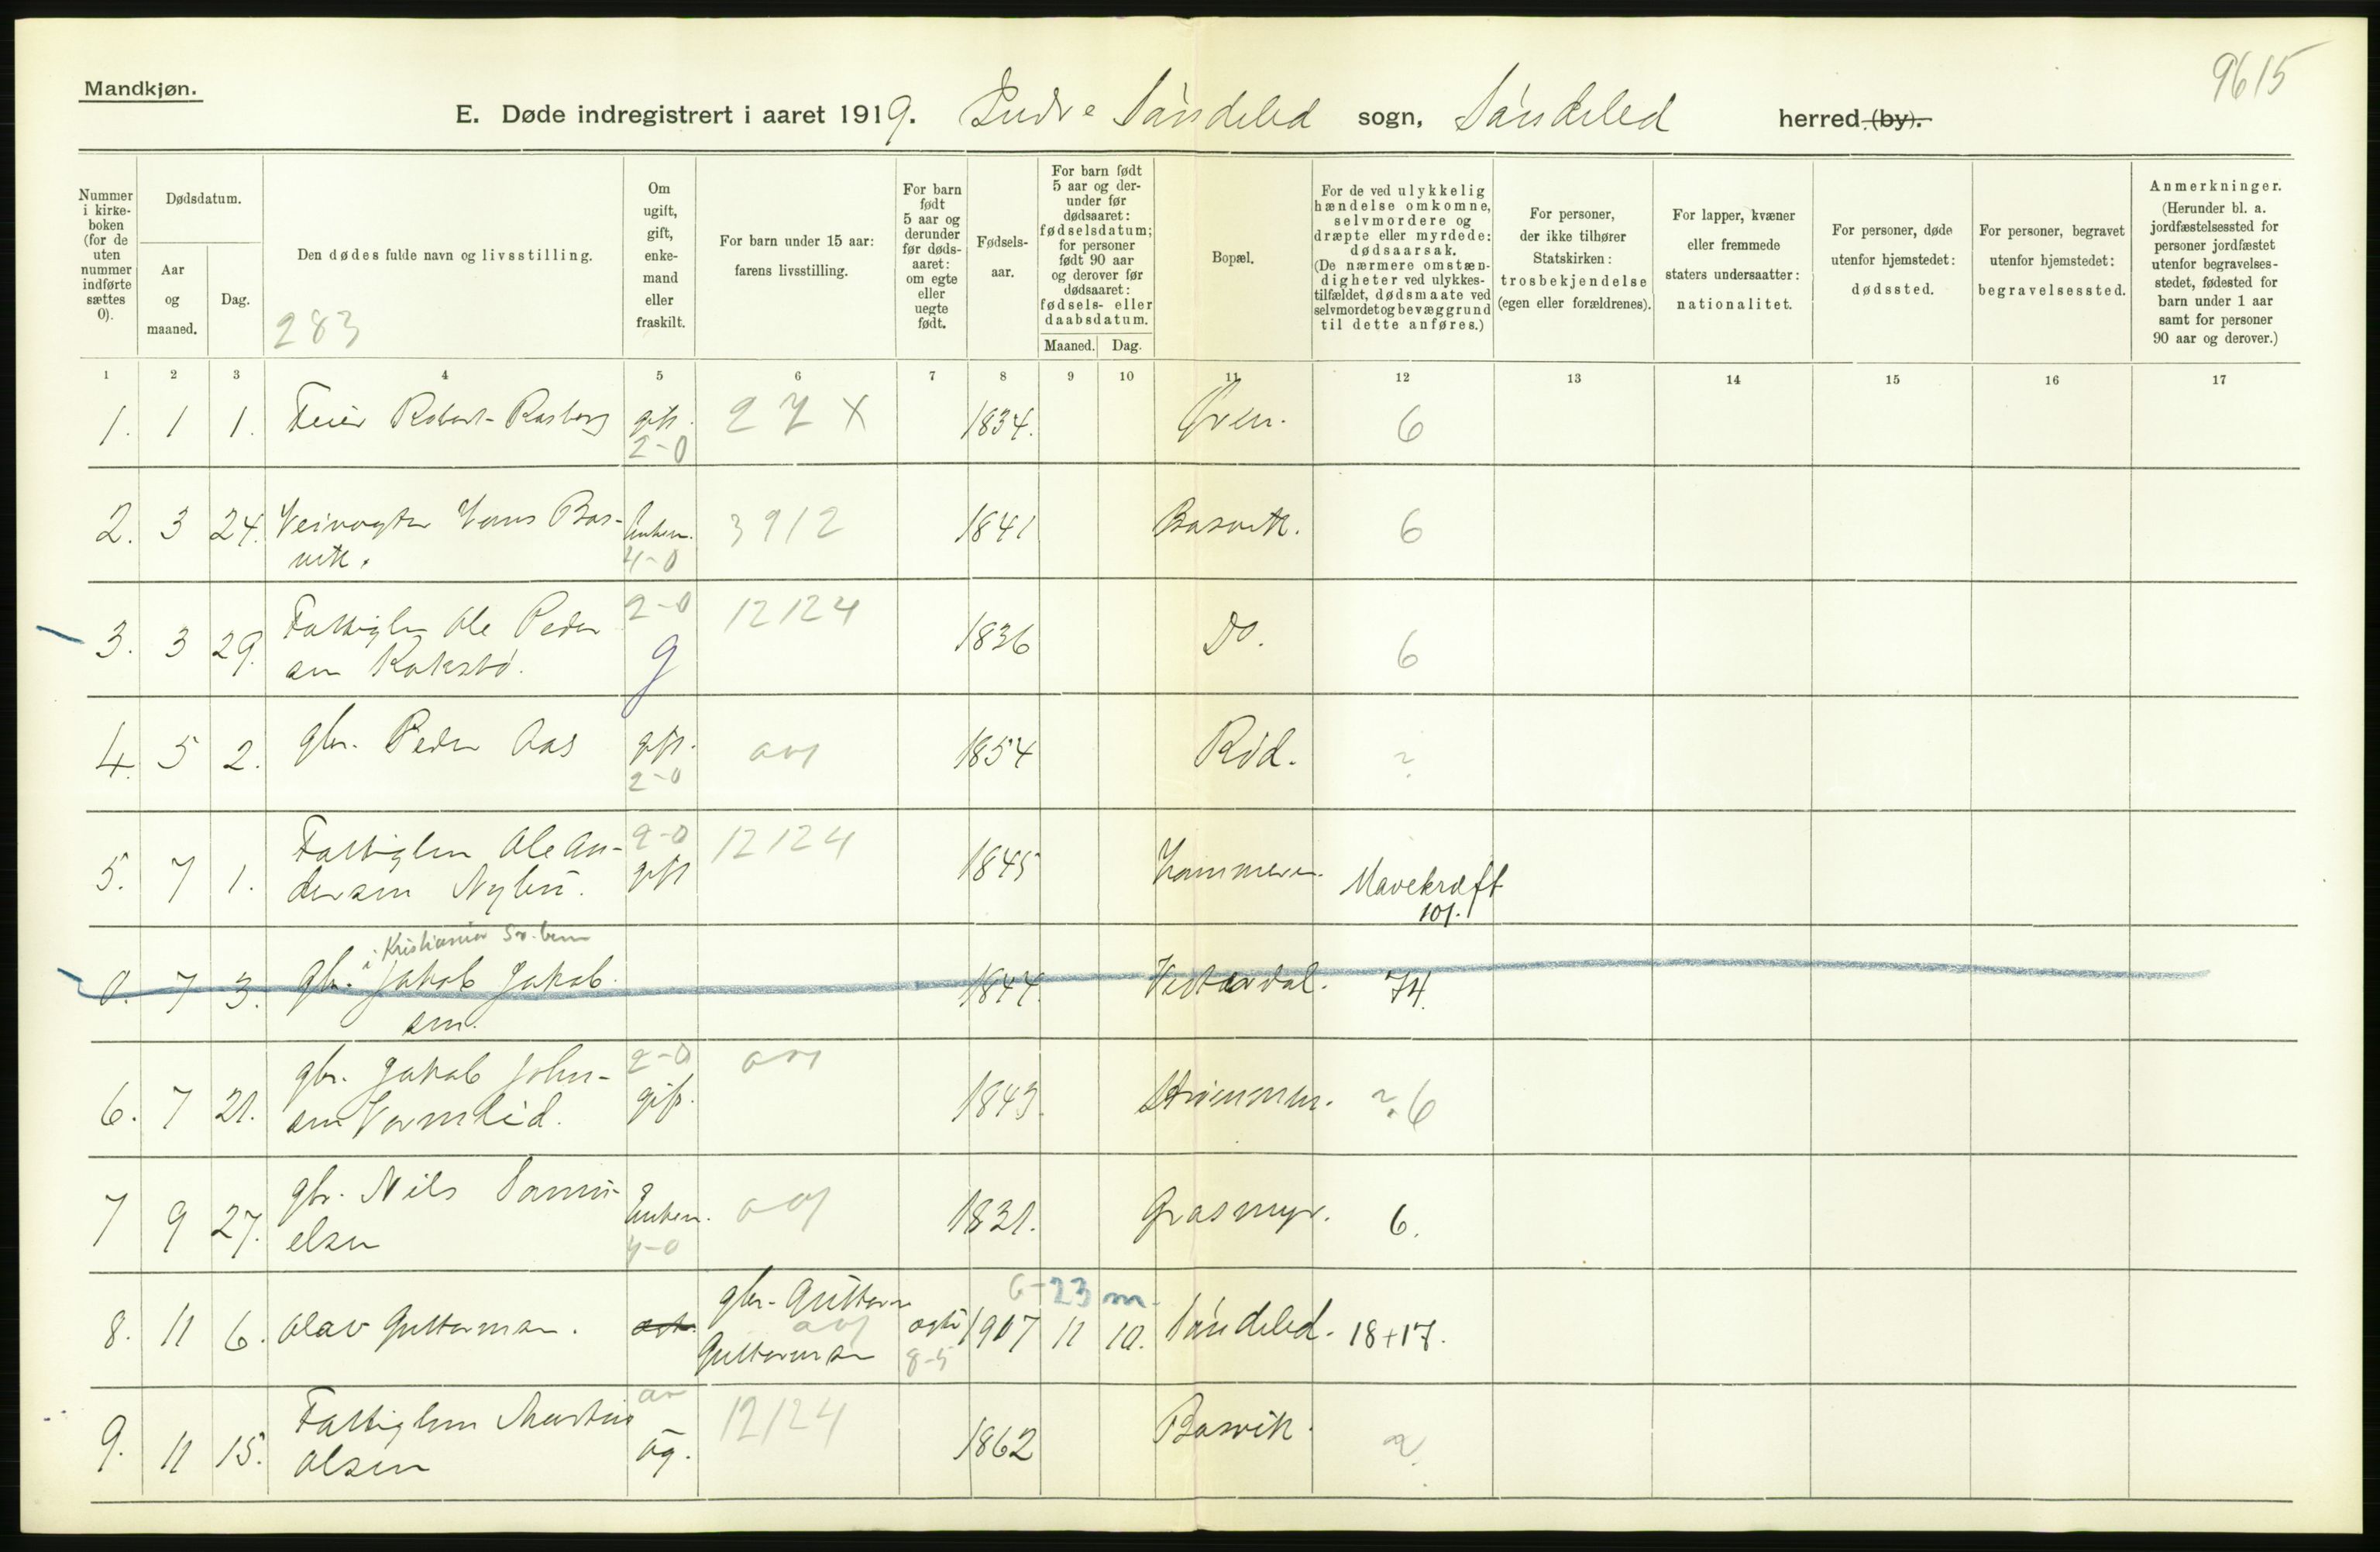 9615
Mandkjøn.
E. Døde indregistrert i aaret 1919. Indre Søndeled sogn, Søndeled herred (by).
Nummer i kirkeboken (for de uten nummer indførte sættes 0).
Dødsdatum.
Aar og maaned.
Dag.
Den dødes fulde navn og livsstilling.
283
Om ugift, gift, enkemand eller fraskilt.
For barn under 15 aar: farens livsstilling.
For barn født 5 aar og derunder før dødsaaret: om egte eller uegte født.
Fødselsaar.
For barn født 5 aar og derunder før dødsaaret: fødselsdatum; for personer født 90 aar og derover før dødsaaret: fødsels- eller daabsdatum.
Maaned. Dag.
Bopæl.
For de ved ulykkelig hændelse omkomne, selvmordere og dræpte eller myrdede: dødsaarsak. (De nærmere omstændigheter ved ulykkestilfældet, dødsmaate ved selvmordet og bevæggrund til dette anføres.)
For personer, der ikke tilhører Statskirken: trosbekjendelse (egen eller forældrenes).
For lapper, kvæner eller fremmede staters undersaatter: nationalitet.
For personer, døde utenfor hjemstedet: dødssted.
For personer, begravet utenfor hjemstedet: begravelsessted.
Anmerkninger. (Herunder bl. a. jordfæstelsessted for personer jordfæstet utenfor begravelsesstedet, fødested for barn under 1 aar samt for personer 90 aar og derover.)
1 2 3 4 5 6 7 8 9 10 11 12 13 14 15 16 17
1. 1 1. Feier Robert Rasberg gift. 27 X 1834. 6
2-0
2. 3 24. Veivogter Hans Bas- Enkem. 3912 1841 Basvik. 6
vik. 4-0
3. 3 29. Fattiglem Ole Peder 2-0 12124 1836 Do. 6
sen Rokstø. g
4. 5 2. gbr. Peder Aas gift. 001 1854 Rød. ?
2-0
5. 7 1. Fattiglem Ole An- 2-0 12124 1845 Hammeren. Mavekræft
dersen Nybu. gift 101.
i Kristiania
0. 7 3. gbr. Jakob Jakob- 1844. Vesterdal. 74.
sen.
6. 7 21. gbr. Jakob John- 2-0 001 1843. Strømmen. ? 6
sen Vormlid. gift.
7 9 27. gbr. Nils Samu- Enkem. 001 1831. Grasmyr. 6.
elsen 4-0
6-23 m.
8. 11 6. Olav Guttormsen. gbr. Guttorm Guttormsen 001 egte 8-5 1907 11 10. Søndeled. 18+17.
9. 11 15. Fattiglem Martin 12124 1862 Basvik. ?
Olsen ug.